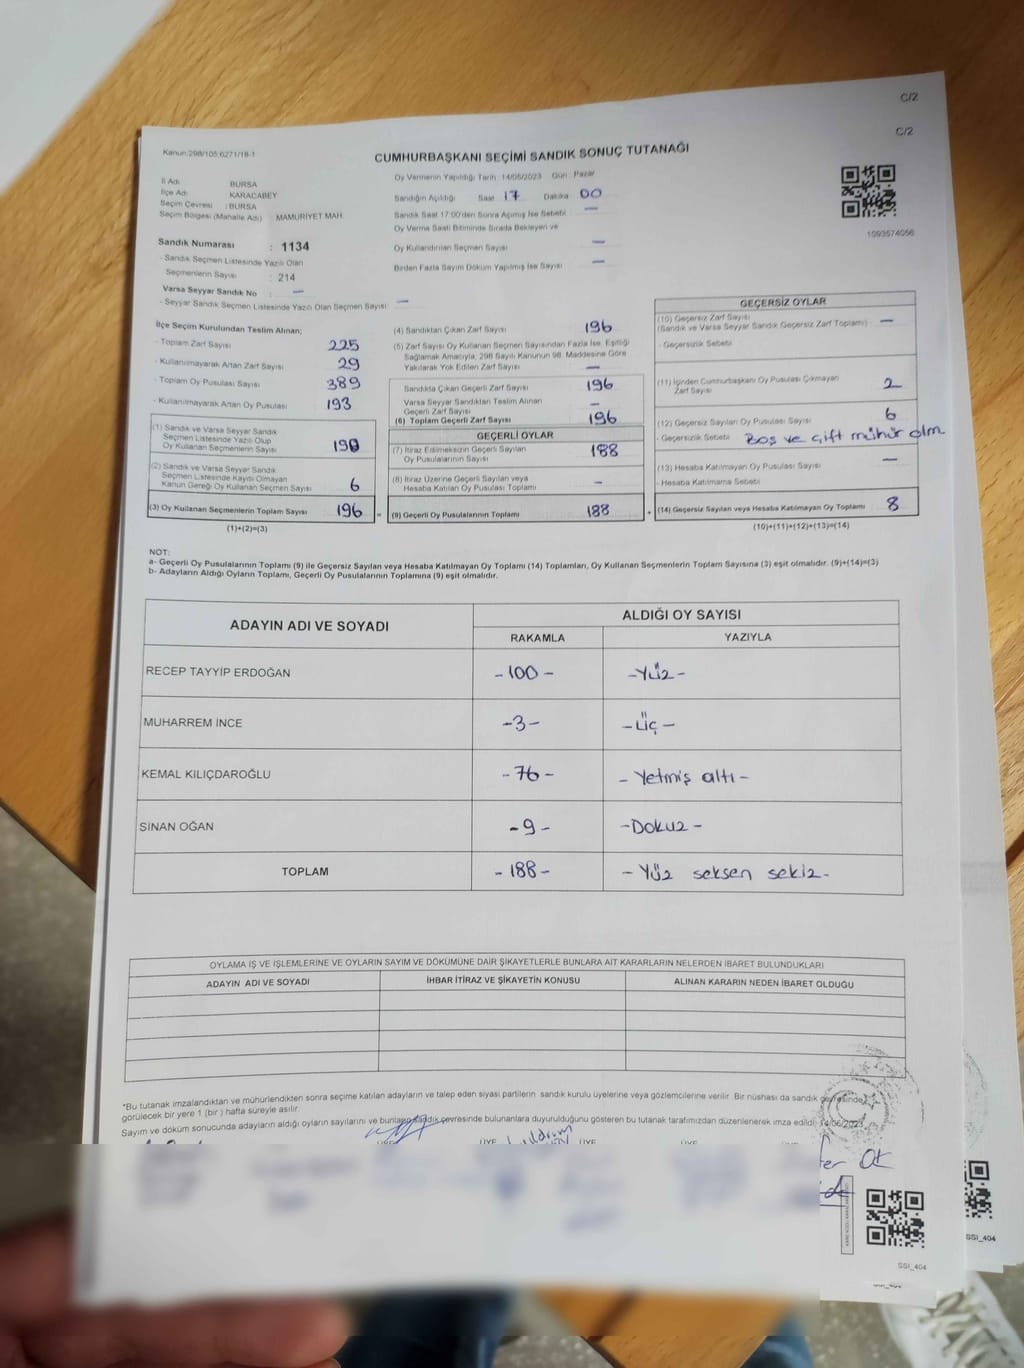 C/2
C/2
Kanun:298/105;6271/18-1
CUMHURBAŞKANI SEÇİMİ SANDIK SONUÇ TUTANAĞI
Oy Vermenin Yapıldığı Tarih : 14/05/2023 Gün : Pazar
İl Adı : BURSA
İlçe Adı : KARACABEY
Seçim Çevresi : BURSA
Seçim Bölgesi (Mahalle Adı) : MAMURİYET MAH.
Sandığın Açıldığı Saat 17 Dakika 00
Sandık Saat 17:00'den Sonra Açılmış İse Sebebi —
Oy Verme Saati Bitiminde Sırada Bekleyen ve
Oy Kullandırılan Seçmen Sayısı —
Birden Fazla Sayım Döküm Yapılmış İse Sayısı —
1093574056
Sandık Numarası : 1134
- Sandık Seçmen Listesinde Yazılı Olan
Seçmenlerin Sayısı : 214
Varsa Seyyar Sandık No : —
- Seyyar Sandık Seçmen Listesinde Yazılı Olan Seçmen Sayısı: —
İlçe Seçim Kurulundan Teslim Alınan;
- Toplam Zarf Sayısı 225
- Kullanılmayarak Artan Zarf Sayısı 29
- Toplam Oy Pusulası Sayısı 389
- Kullanılmayarak Artan Oy Pusulası 193
(1) Sandık ve Varsa Seyyar Sandık
Seçmen Listesinde Yazılı Olup
Oy Kullanan Seçmenlerin Sayısı 190
(2) Sandık ve Varsa Seyyar Sandık
Seçmen Listesinde Kaydı Olmayan
Kanun Gereği Oy Kullanan Seçmen Sayısı 6
(3) Oy Kullanan Seçmenlerin Toplam Sayısı 196 =
(1)+(2)=(3)
(4) Sandıktan Çıkan Zarf Sayısı 196
(5) Zarf Sayısı Oy Kullanan Seçmen Sayısından Fazla İse, Eşitliği
Sağlamak Amacıyla, 298 Sayılı Kanunun 98. Maddesine Göre
Yakılarak Yok Edilen Zarf Sayısı —
Sandıkta Çıkan Geçerli Zarf Sayısı 196
Varsa Seyyar Sandıktan Teslim Alınan
Geçerli Zarf Sayısı —
(6) Toplam Geçerli Zarf Sayısı 196
GEÇERLİ OYLAR
(7) İtiraz Edilmeksizin Geçerli Sayılan
Oy Pusulalarının Sayısı 188
(8) İtiraz Üzerine Geçerli Sayılan veya
Hesaba Katılan Oy Pusulası Toplamı -
(9) Geçerli Oy Pusulalarının Toplamı 188 +
GEÇERSİZ OYLAR
(10) Geçersiz Zarf Sayısı
(Sandık ve Varsa Seyyar Sandık Geçersiz Zarf Toplamı) —
- Geçersizlik Sebebi
(11) İçinden Cumhurbaşkanı Oy Pusulası Çıkmayan
Zarf Sayısı 2
(12) Geçersiz Sayılan Oy Pusulası Sayısı 6
- Geçersizlik Sebebi Boş ve Çift mühür olm.
(13) Hesaba Katılmayan Oy Pusulası Sayısı —
- Hesaba Katılmama Sebebi
(14) Geçersiz Sayılan veya Hesaba Katılmayan Oy Toplamı 8
(10)+(11)+(12)+(13)=(14)
NOT:
a- Geçerli Oy Pusulalarının Toplamı (9) ile Geçersiz Sayılan veya Hesaba Katılmayan Oy Toplamı (14) Toplamları, Oy Kullanan Seçmenlerin Toplam Sayısına (3) eşit olmalıdır. (9)+(14)=(3)
b- Adayların Aldığı Oyların Toplamı, Geçerli Oy Pusulalarının Toplamına (9) eşit olmalıdır.
ADAYIN ADI VE SOYADI
ALDIĞI OY SAYISI
RAKAMLA YAZIYLA
RECEP TAYYİP ERDOĞAN -100- -Yüz-
MUHARREM İNCE -3- -Üç-
KEMAL KILIÇDAROĞLU -76- -Yetmiş altı-
SİNAN OĞAN -9- -Dokuz-
TOPLAM -188- -Yüz seksen sekiz-
OYLAMA İŞ VE İŞLEMLERİNE VE OYLARIN SAYIM VE DÖKÜMÜNE DAİR ŞİKAYETLERLE BUNLARA AİT KARARLARIN NELERDEN İBARET BULUNDUKLARI
ADAYIN ADI VE SOYADI İHBAR İTİRAZ VE ŞİKAYETİN KONUSU ALINAN KARARIN NEDEN İBARET OLDUĞU
*Bu tutanak imzalandıktan ve mühürlendikten sonra seçime katılan adayların ve talep eden siyasi partilerin sandık kurulu üyelerine veya gözlemcilerine verilir. Bir nüshası da sandık çevresinde
görülecek bir yere 1 (bir) hafta süreyle asılır.
Sayım ve döküm sonucunda adayların aldığı oyların sayılarını ve bunların sandık çevresinde bulunanlara duyurulduğunu gösteren bu tutanak tarafımızdan düzenlenerek imza edildi. 14/05/2023
ÜYE ÜYE ÜYE
SSİ_404
SSİ_404